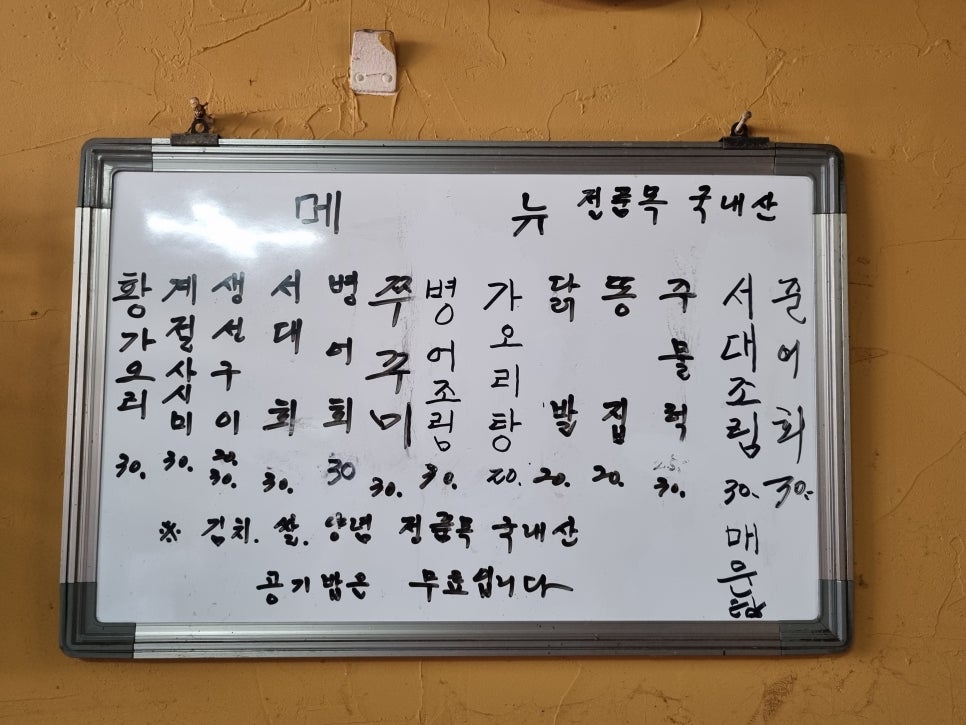 메 뉴 전품목 국내산
황가오리 30.
계절사시미 30.
생선구이 20. 30.
서대회 30.
병어회 30
쭈꾸미 30.
병어조림 30.
가오리탕 20.
닭발 20.
똥집 20.
주물럭 30.
서대조림 30.
매운탕
준어회 30.
※ 김치. 쌀. 양념 전품목 국내산
공기밥은 무료입니다